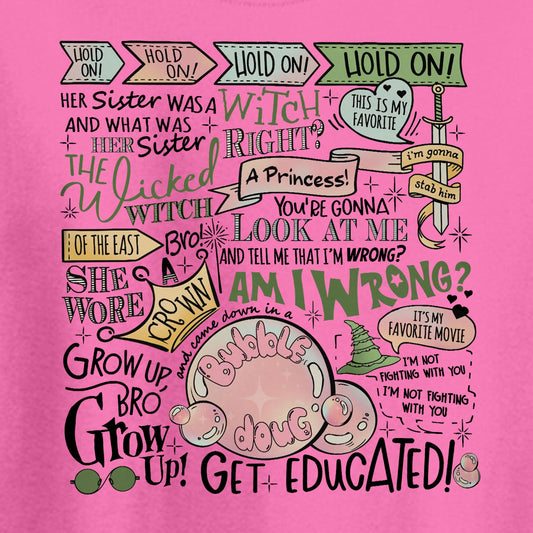 HOLD ON!
HOLD ON!
HOLD ON!
HOLD ON!
HER Sister WAS A WITCH
THIS IS MY FAVORITE
AND WHAT WAS HER Sister
RIGHT?
i'm gonna
stab him
THE Wicked WITCH
A Princess!
YOU'RE GONNA
LOOK AT ME
OF THE EAST
Bro!
AND TELL ME THAT I'M WRONG?
SHE WORE
A
CROWN
AM I WRONG?
and came down in a
Bubble
doug
IT'S MY
FAVORITE MOVIE
GROW UP,
BRO
I'M NOT
FIGHTING WITH YOU
I'M NOT FIGHTING
WITH YOU
Grow
UP!
GET EDUCATED!